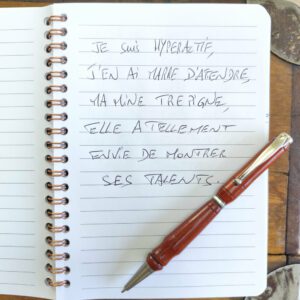 JE SUIS HYPERACTIF,
J'EN AI MARRE D'ATENDRE,
MA MINE TREPIGNE,
ELLE A TELLEMENT
ENVIE DE MONTRER
SES TALENTS.